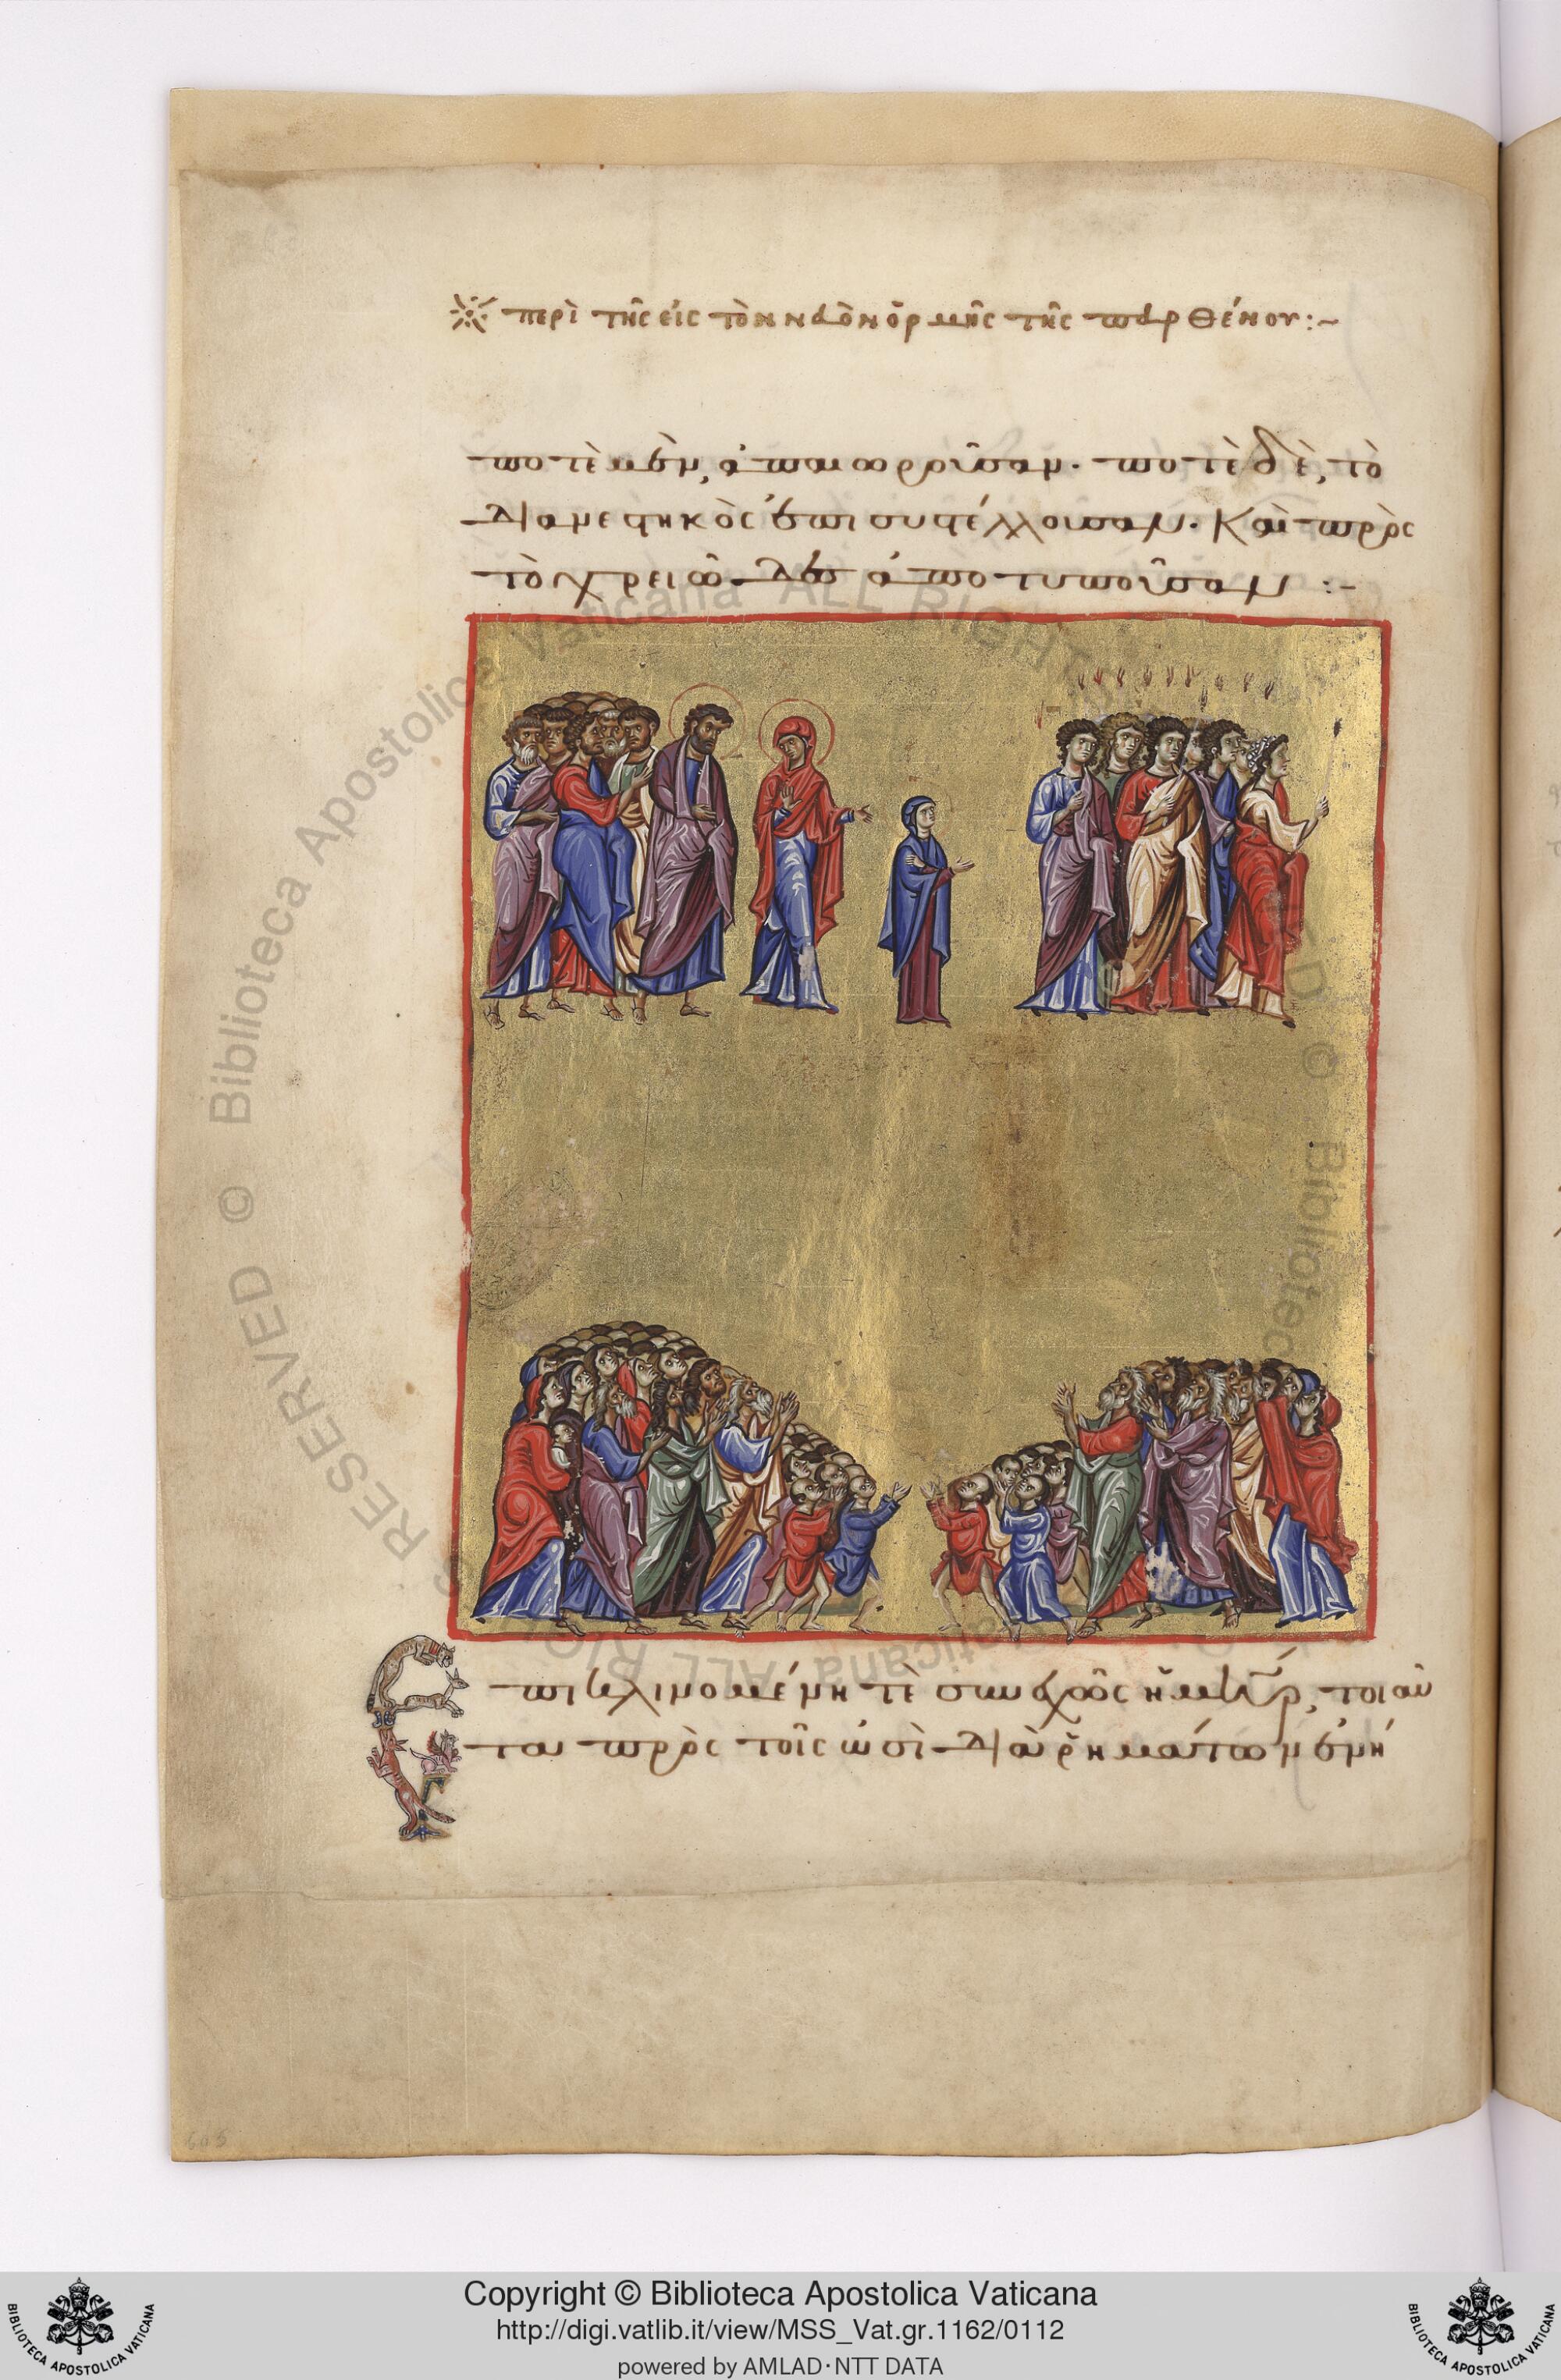 περὶ τῆς εἰς τὸν ναὸν ὁρμῆς τῆς παρθένου :~
ποτὲ μὲν, ἀπαιωροῦσαν· ποτὲ δὲ, τὸ
διανεστηκὸς ἐπισυστέλλουσαν. καὶ πρὸς
τὸ χρειῶδες ἀποτυποῦσαν :~
Ἐπικλινομένη τὲ συναχῶς ἡ μῆρ, τοιαῦ
τα πρὸς τοῖς ὠσὶ διὰ ῥημάτων ἐνή
RESERVED © Biblioteca Apostolica Vaticana ALL RIGHTS RESERVED © Biblioteca Apostolica Vaticana ALL RIGHTS
Copyright © Biblioteca Apostolica Vaticana
http://digi.vatlib.it/view/MSS_Vat.gr.1162/0112
powered by AMLAD·NTT DATA
BIBLIOTECA APOSTOLICA VATICANA
BIBLIOTECA APOSTOLICA VATICANA